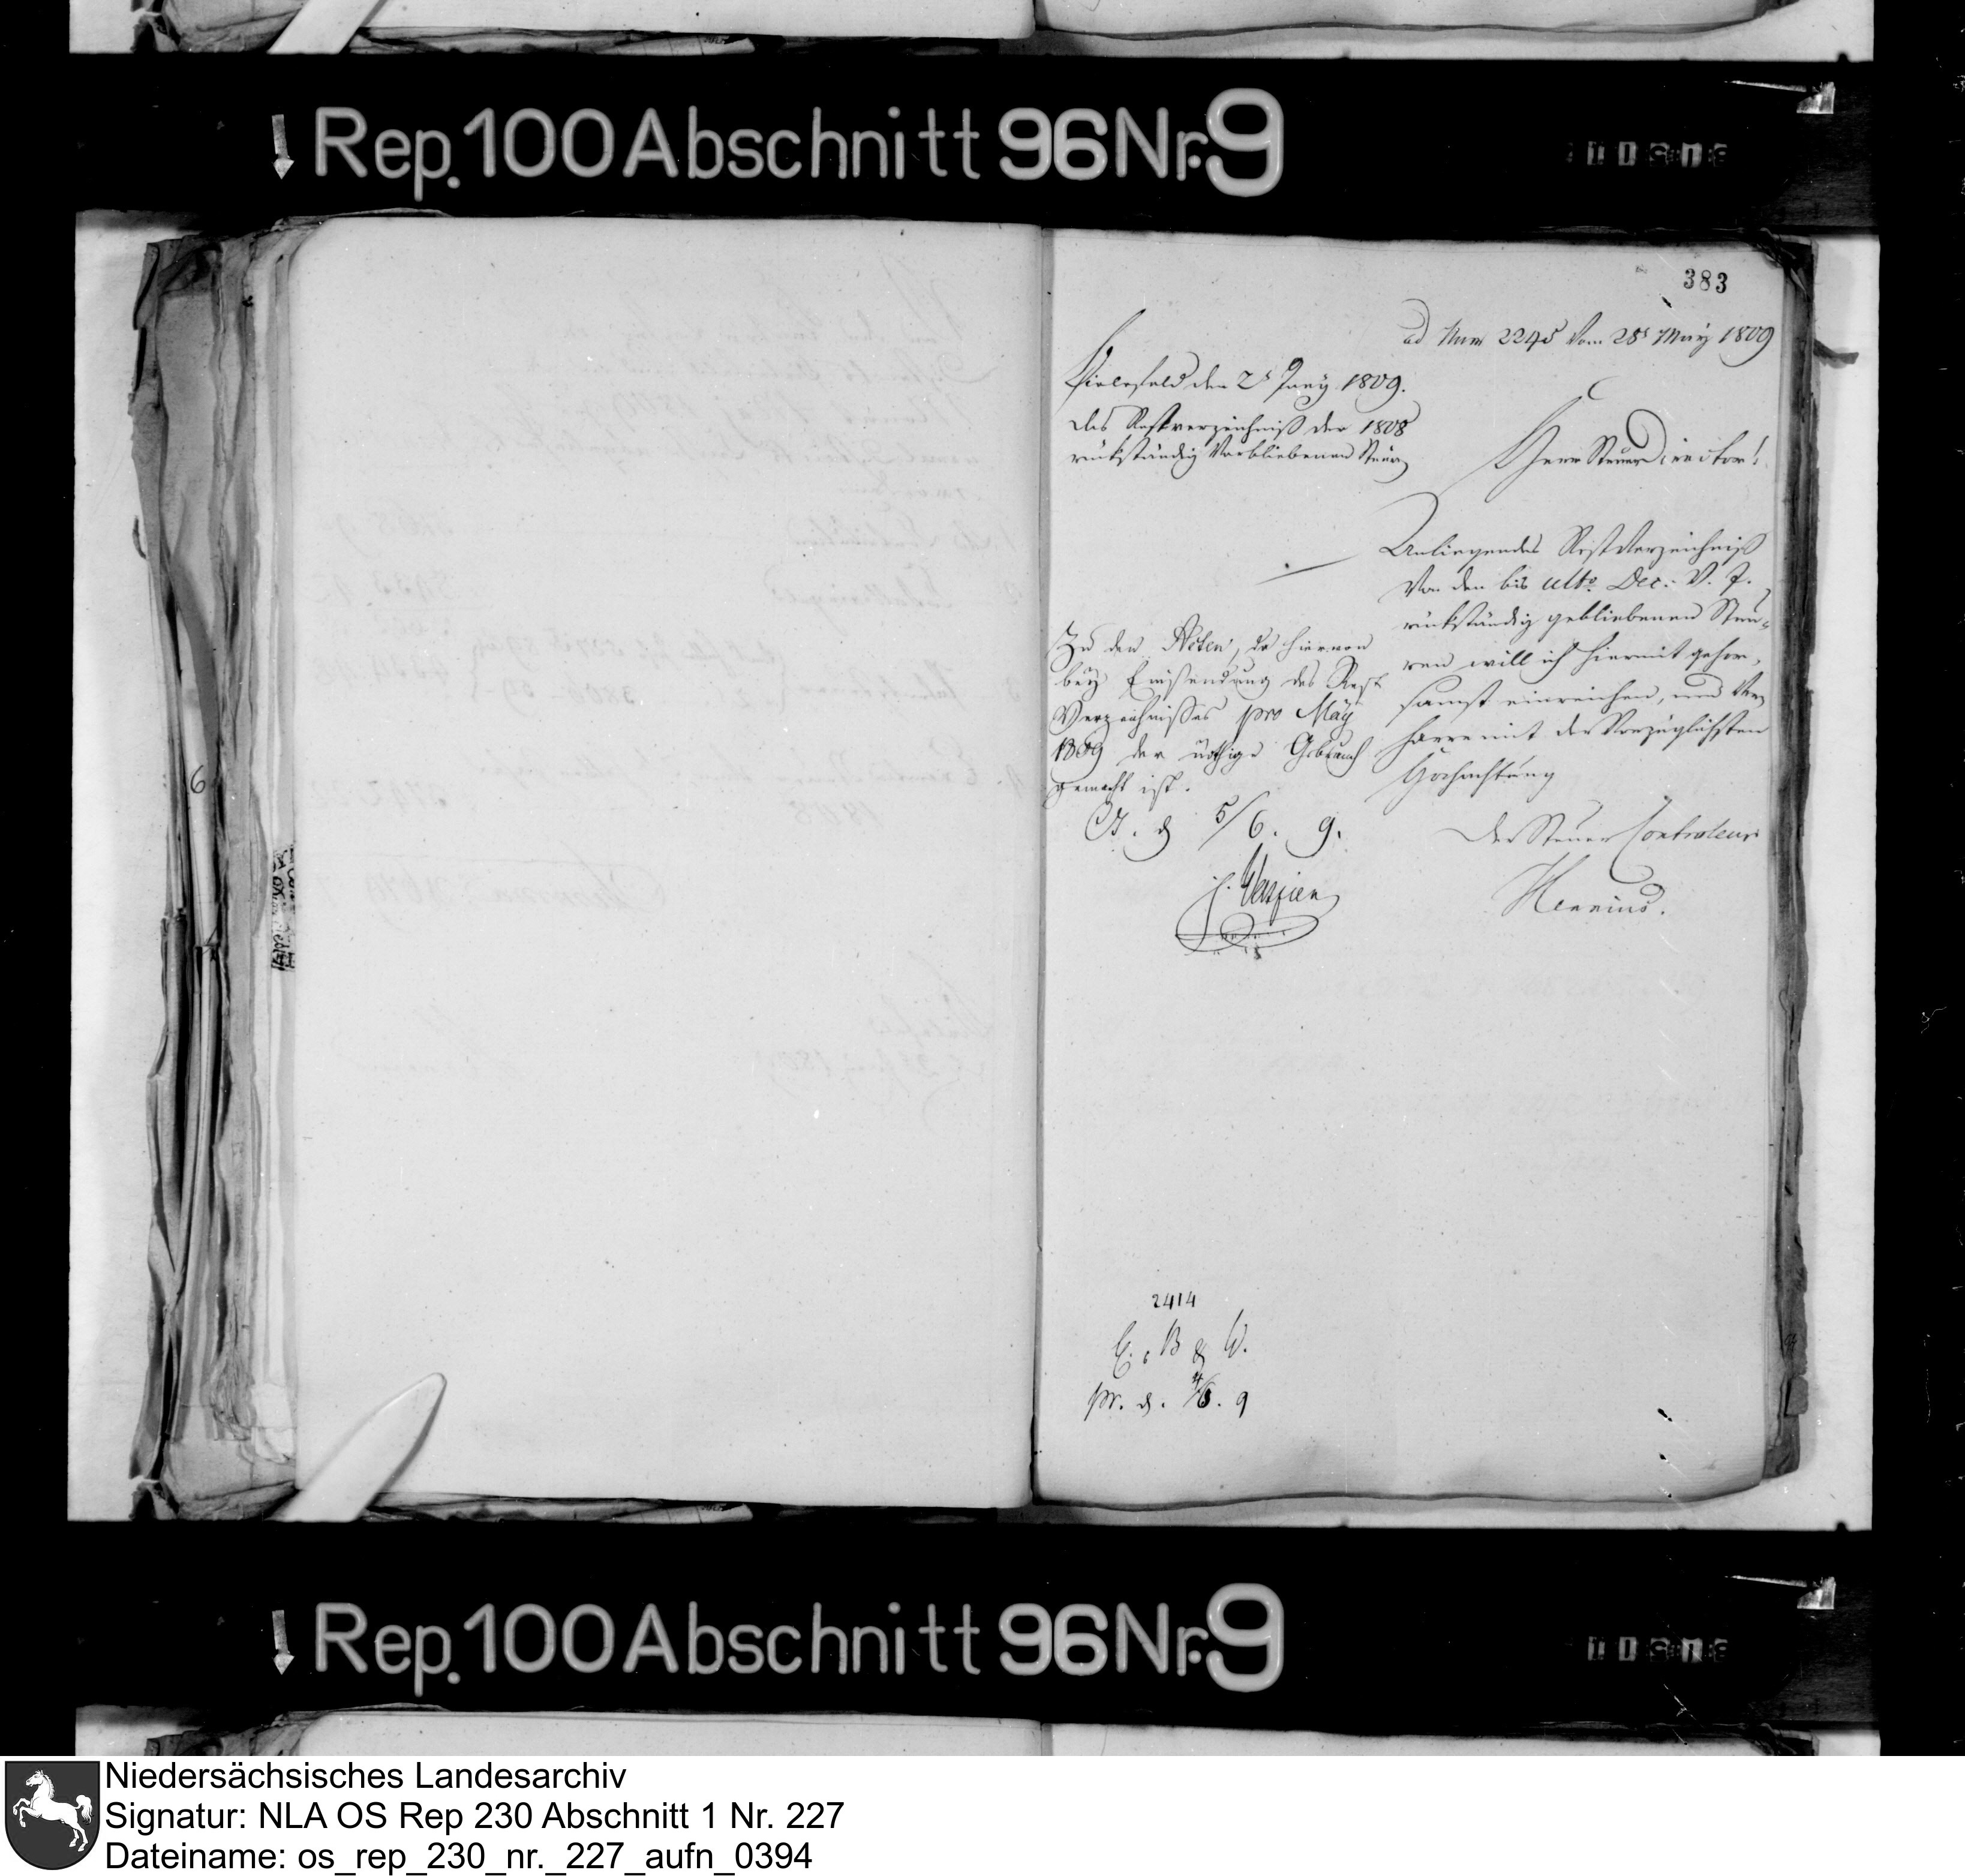 Rep. 100 Abschnitt 96 Nr. 9
383
ad Num 2245 vom 28t May 1809
Bielefeld den 2t Juny 1809.
das Restverzeichniß der 1808
rückständig verbliebenen Steuern
Herr Steuer Director!
Anliegendes Rest Verzeichniß
von den bis ulto Dec: v. J.
rückständig gebliebenen Steu-
ren will ich hiermit gehor-
samst einreichen, und ver-
harre mit der vorzüglichsten
Hochachtung
Der Steuer Controleur
Hennius.
Zu den Acten, da hiervon
bey Einsendung des Rest
Verzeichnisses pro May
1809 der nöthige Gebrauch
gemacht ist.
d 5/6. 9.
2414
E. B & W.
pr. d. 4/6. 9
6
Rep. 100 Abschnitt 96 Nr. 9
Niedersächsisches Landesarchiv
Signatur: NLA OS Rep 230 Abschnitt 1 Nr. 227
Dateiname: os_rep_230_nr._227_aufn_0394